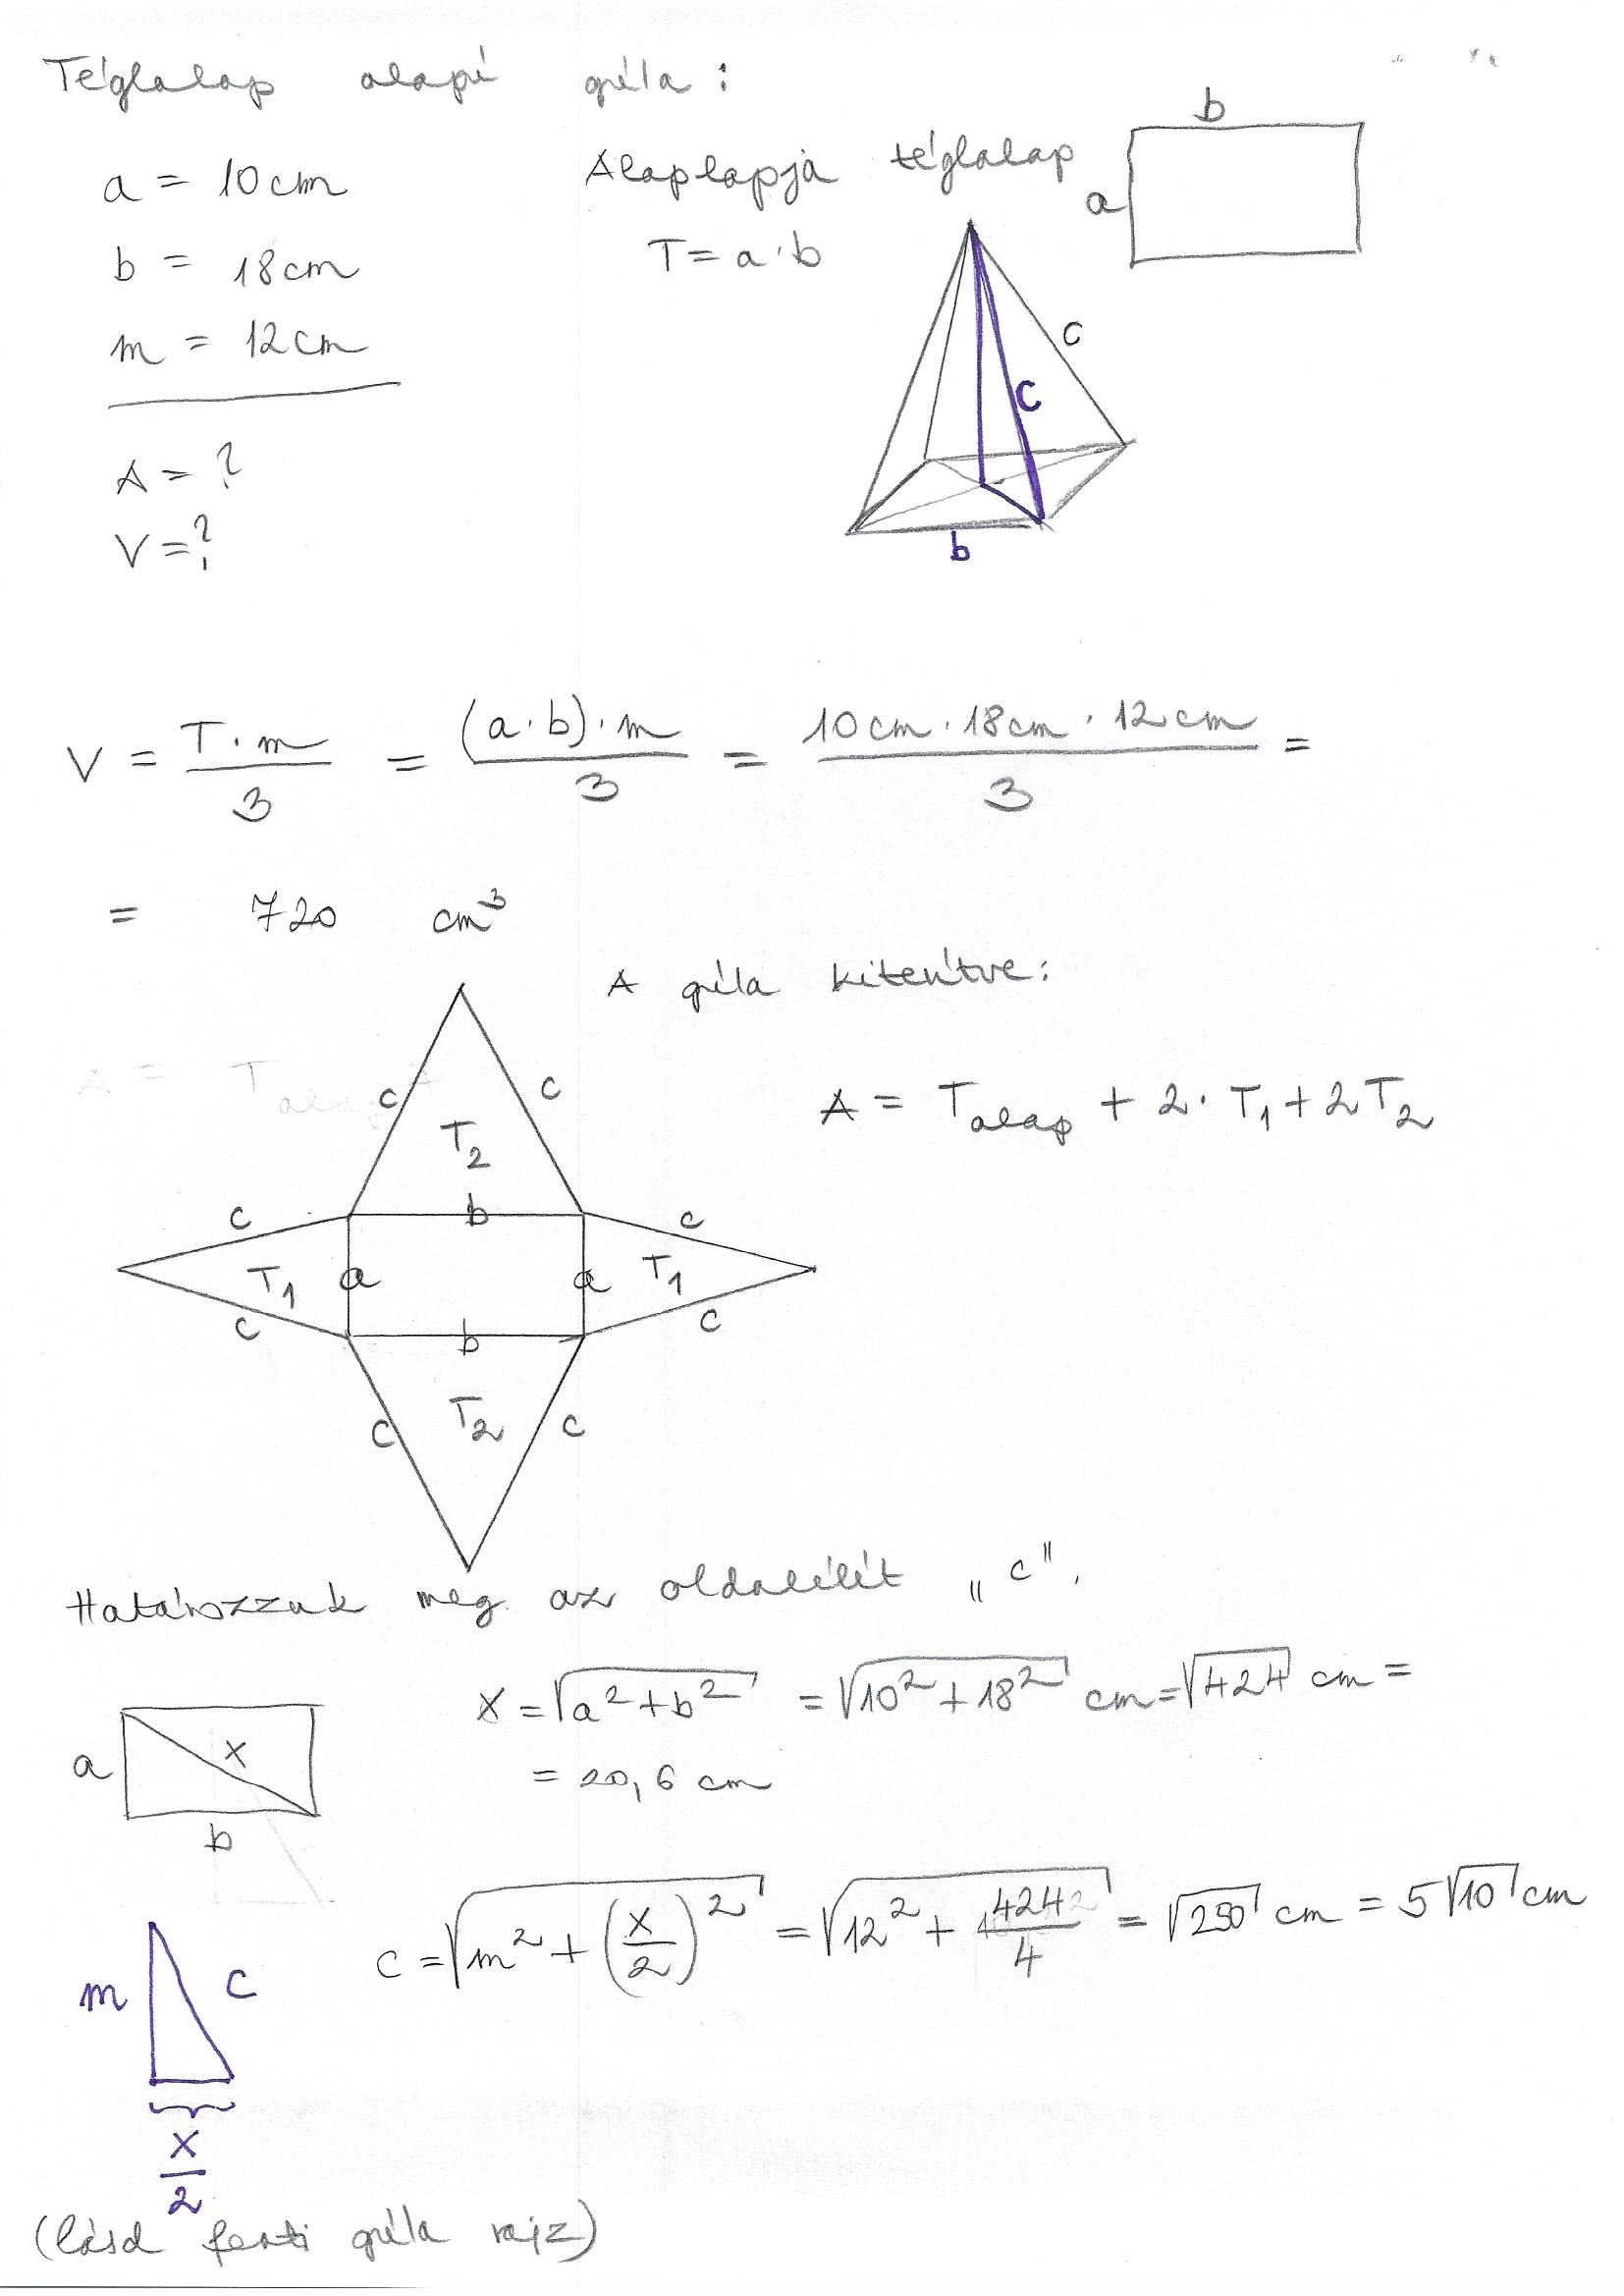 Téglalap alapú gúla:
a = 10 cm
b = 18 cm
m = 12 cm
A = ?
V = ?
Alaplapja téglalap
T = a · b
b
a
c
c
b
V = T · m / 3 = (a · b) · m / 3 = 10 cm · 18 cm · 12 cm / 3 =
= 720 cm³
A gúla kiterítve:
A = T alap + 2 · T₁ + 2 T₂
c c
T₂
c b c
T₁ a a T₁
c b c
T₂
c c
Határozzuk meg az oldalélét „c".
x = √(a² + b²) = √(10² + 18²) cm = √424 cm =
= 20,6 cm
a x
b
c = √(m² + (x/2)²) = √(12² + 424/4) = √250 cm = 5√10 cm
m c
x/2
(lásd fenti gúla rajz)